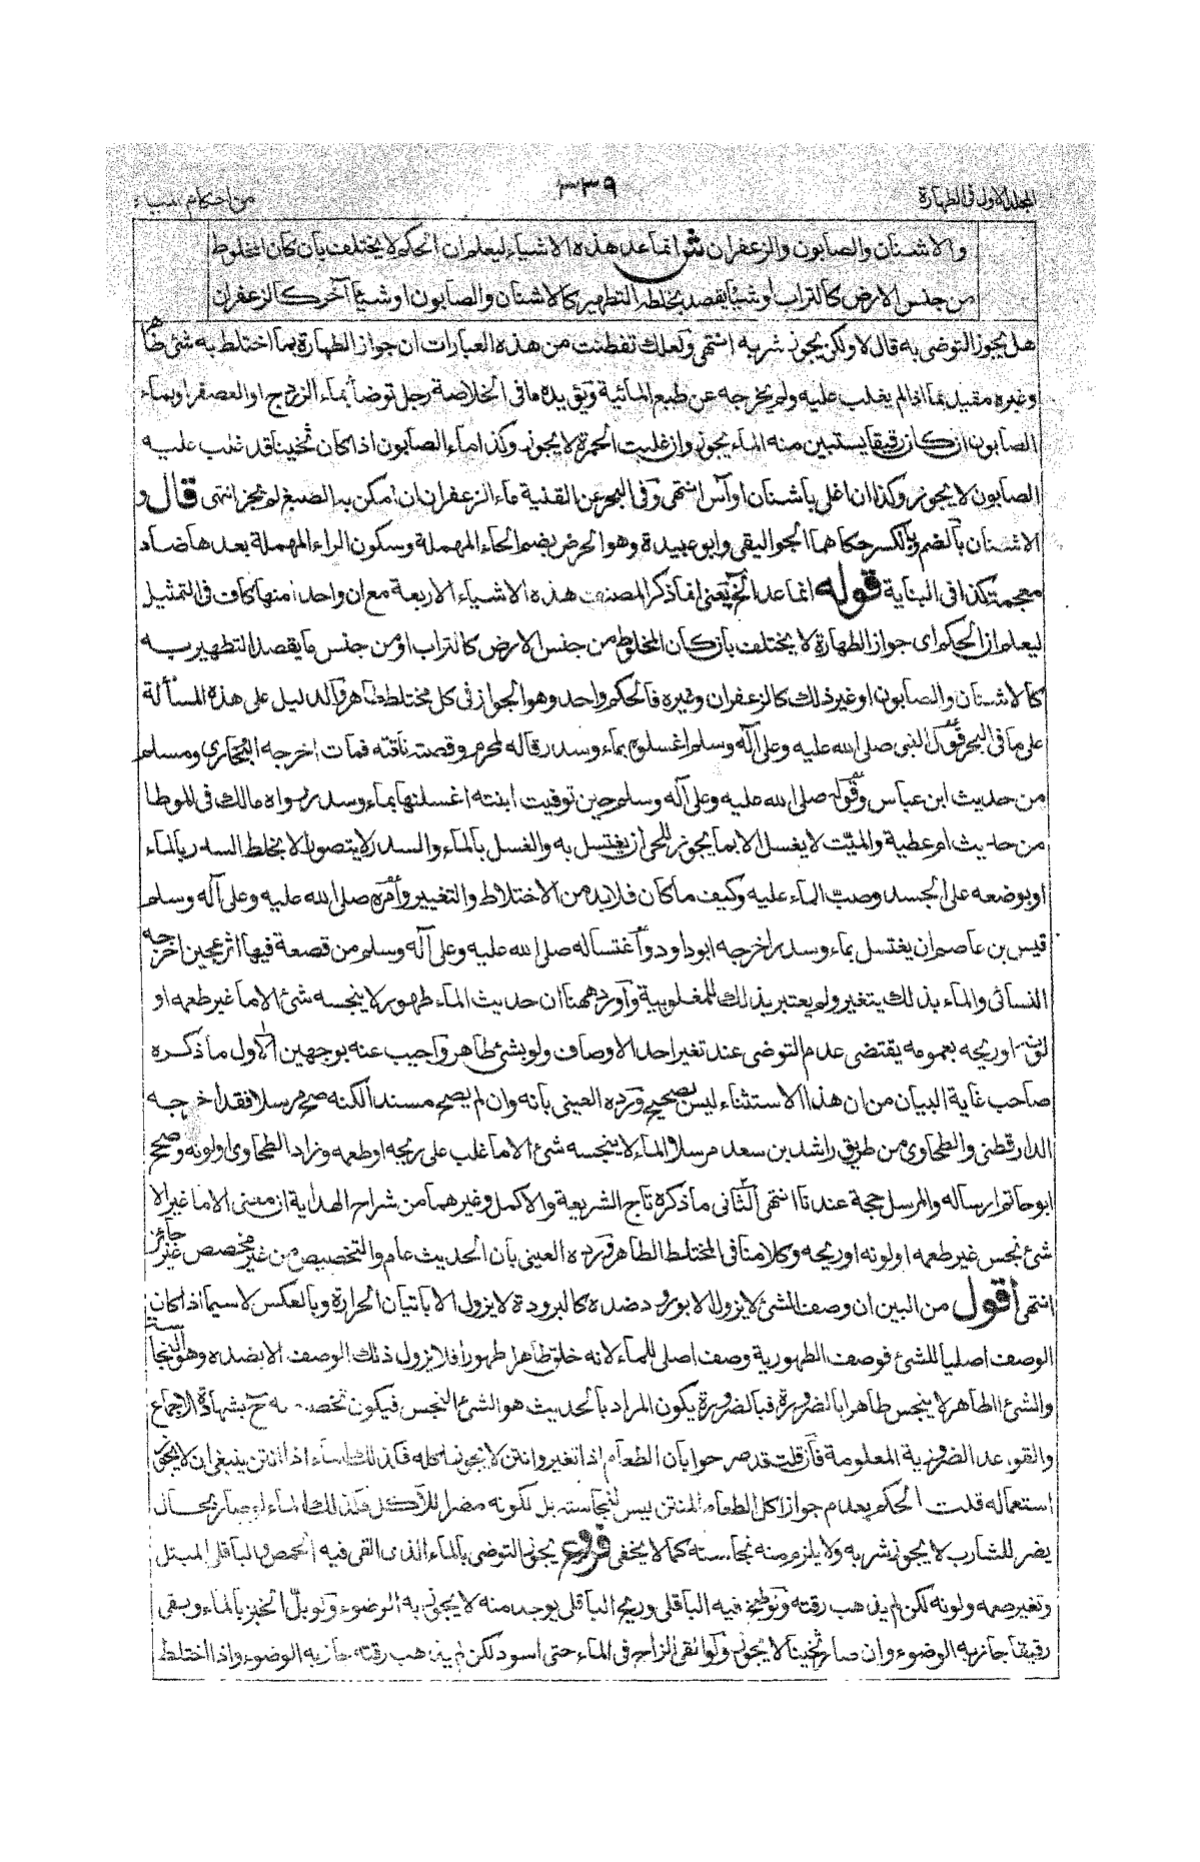 المجلد الاول فى الطهارة
٣٣٩
من احكام المياه
والاشنان والصابون والزعفران ش انما عد هذه الاشياء ليعلم ان الحكم لا يختلف بان كان المخلوط
من جنس الارض كالتراب او شيئا يقصد بخلطه التطهير كالاشنان والصابون او شيئا آخر كالزعفران
هل يجوز التوضى به قال لا ولكن يجوز شربه انتهى ولعلك تفطنت من هذه العبارات ان جواز الطهارة بما اختلط به شئ طاهر
وغيره مقيد بما اذا لم يغلب عليه ولم يخرجه عن طبع المائية ويؤيده ما فى الخلاصة رجل توضأ بماء الزردج او العصفر او بماء
الصابون ان كان رقيقا يستبين منه الماء يجوز وان غلبت الحمرة لا يجوز وكذا ماء الصابون اذا كان ثخينا قد غلب عليه
الصابون لا يجوز وكذا ان اغلى باشنان او آس انتهى وفى البحر عن القنية ماء الزعفران ان امكن به الصبغ لم يجز انتهى قال و
الاشنان بالضم والكسر حكاهما الجواليقى وابو عبيدة وهو الحرض بضم الحاء المهملة وسكون الراء المهملة بعدها ضاد
معجمة كذا فى البناية قوله انما عد الخ يعنى انما ذكر المصنف هذه الاشياء الاربعة مع ان واحدا منها كاف فى التمثيل
ليعلم ان الحكم اى جواز الطهارة لا يختلف بان كان المخلوط من جنس الارض كالتراب او من جنس ما يقصد التطهير به
كالاشنان والصابون او غير ذلك كالزعفران وغيره فالحكم واحد وهو الجواز فى كل مختلط طاهر والدليل على هذه المسألة
على ما فى البحر قول النبى صلى الله عليه وعلى آله وسلم اغسلوه بماء وسدر قاله لمحرم وقصته ناقته فمات اخرجه البخارى ومسلم
من حديث ابن عباس وقوله صلى الله عليه وعلى آله وسلم حين توفيت ابنته اغسلنها بماء وسدر رواه مالك فى الموطا
من حديث ام عطية والميت لا يغسل الا بما يجوز للحى ان يغتسل به والغسل بالماء والسدر لا يتصور الا بخلط السدر بالماء
او بوضعه على الجسد وصب الماء عليه وكيف ما كان فلا بد من الاختلاط والتغيير وامره صلى الله عليه وعلى آله وسلم
قيس بن عاصم ان يغتسل بماء وسدر اخرجه ابو داود واغتساله صلى الله عليه وعلى آله وسلم من قصعة فيها اثر عجين اخرجه
النسائى والماء بذلك يتغير ولم يعتبر بذلك للمغلوبية واورد ههنا ان حديث الماء طهور لا ينجسه شئ الا ما غير طعمه او
لونه او ريحه بعمومه يقتضى عدم التوضى عند تغير احد الاوصاف ولو بشئ طاهر واجيب عنه بوجهين الاول ما ذكره
صاحب غاية البيان من ان هذا الاستثناء ليس بصحيح ورده العينى بانه وان لم يصح مسندا لكنه صح مرسلا فقد اخرجه
الدارقطنى والطحاوى من طريق راشد بن سعد مرسلا الماء لا ينجسه شئ الا ما غلب على ريحه او طعمه وزاد الطحاوى او لونه وصح
ابو حاتم ارساله والمرسل حجة عندنا انتهى الثانى ما ذكره تاج الشريعة والاكمل وغيرهما من شراح الهداية ان معنى الا ما غير الا
شئ نجس غير طعمه او لونه او ريحه وكلامنا فى المختلط الطاهر ورده العينى بان الحديث عام والتخصيص من غير مخصص غير جائز
انتهى اقول من البين ان وصف الشئ لا يزول الا بورود ضده كالبرودة لا يزول الا باتيان الحرارة وبالعكس لا سيما اذا كان
الوصف اصليا للشئ فوصف الطهورية وصف اصلى للماء لانه خلق طاهرا طهورا فلا يزول ذلك الوصف الا بضده وهو النجاسة
والشئ الطاهر لا ينجس طاهرا بالضرورة فبالضرورة يكون المراد بالحديث هو الشئ النجس فيكون تخصيصه ح بشهادة الاجماع
والقواعد الضرورية المعلومة فان قلت قد صرحوا بان الطعام اذا تغير وانتن لا يجوز اكله فكذلك الماء اذا انتن ينبغى ان لا يجوز
استعماله قلت الحكم بعدم جواز اكل الطعام المنتن ليس لنجاسته بل لكونه مضرا للآكل فلذلك الماء لو صار بحال
يضر للشارب لا يجوز شربه ولا يلزم منه نجاسته كما لا يخفى فروع يجوز التوضى بالماء الذى القى فيه الحمص والباقلى المبتل
وتغير طعمه ولونه لكن لم يذهب رقته ولو طبخ فيه الباقلى وريح الباقلى يوجد منه لا يجوز به الوضوء ولو بل الخبز بالماء وبقى
رقيقا جاز به الوضوء وان صار ثخينا لا يجوز ولو القى الزاج فى الماء حتى اسود لكن لم يذهب رقته جاز به الوضوء واذا اختلط